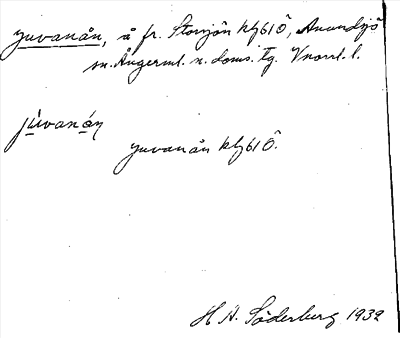 yuvanån, å fr. Storsjön klj61Ö, Anundsjö
sn. Ångerml. n. doms. tg. Vnorrl. l.
júvanán
yuvanån klj61Ö.
H. A. Söderberg 1932